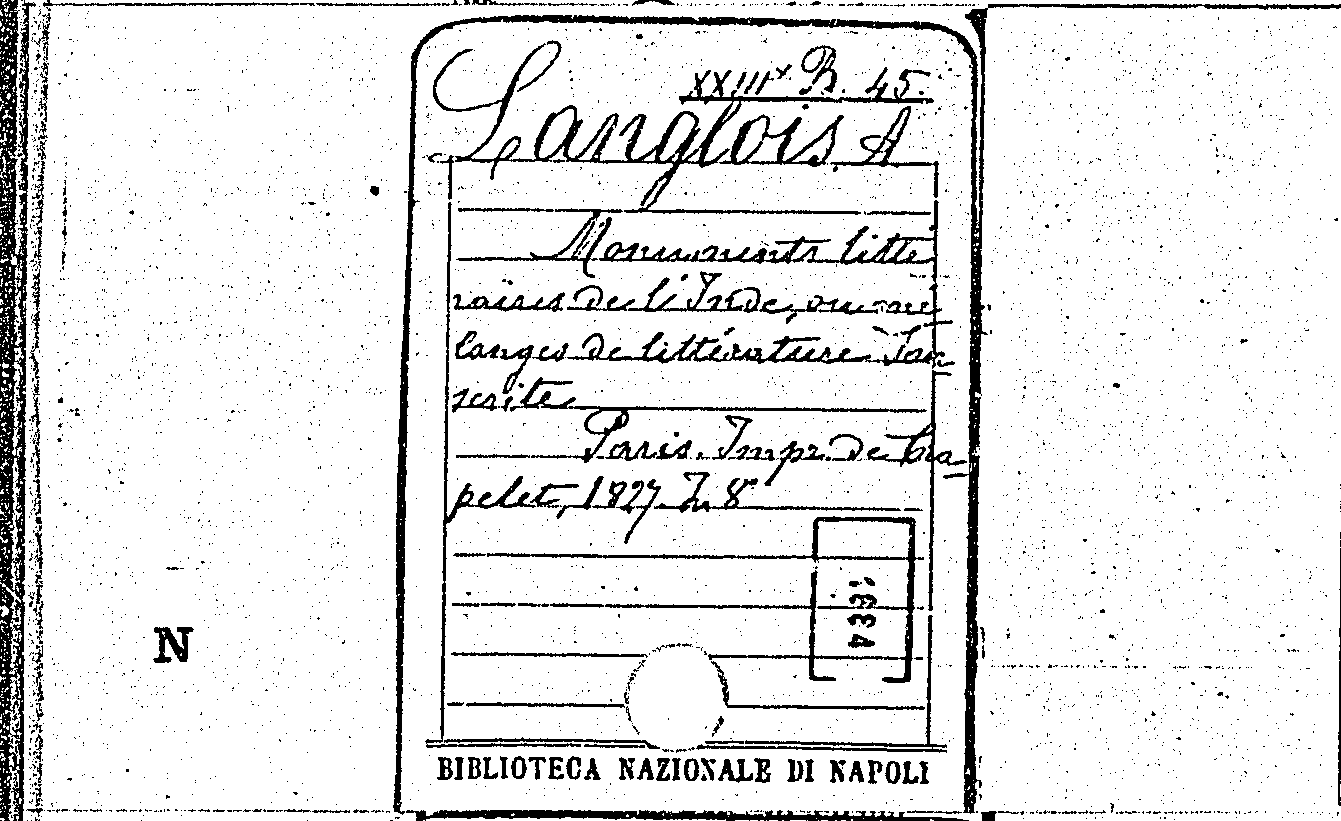 XXIII^x B. 45.
Langlois. A
Monuments litté
raires de l'Inde, ou mé
langes de littérature San
scrite
Paris. Impr. de Cra
pelet, 1827. In 8°
1934
N
BIBLIOTECA NAZIONALE DI NAPOLI